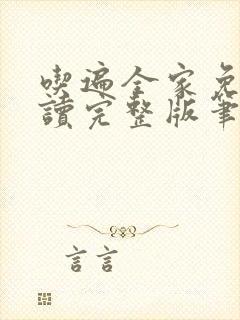 喫遍全家免
讀完整版筆
言言